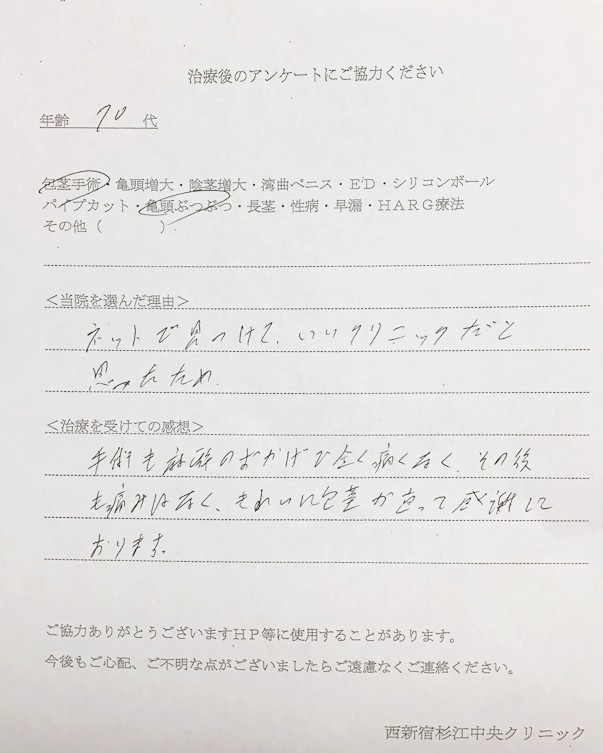 治療後のアンケートにご協力ください
年齢 70 代
包茎手術・亀頭増大・陰茎増大・湾曲ペニス・ED・シリコンボール
パイプカット・亀頭ぶつぶつ・長茎・性病・早漏・HARG療法
その他（　　　　）.
＜当院を選んだ理由＞
ネットで見つけて、いいクリニックだと
思ったため.
＜治療を受けての感想＞
手術も麻酔のおかげで全く痛くなく、その後
も痛みはなく、きれいに包茎が治って感謝して
おります。
ご協力ありがとうございますHP等に使用することがあります。
今後もご心配、ご不明な点がございましたらご遠慮なくご連絡ください。
西新宿杉江中央クリニック